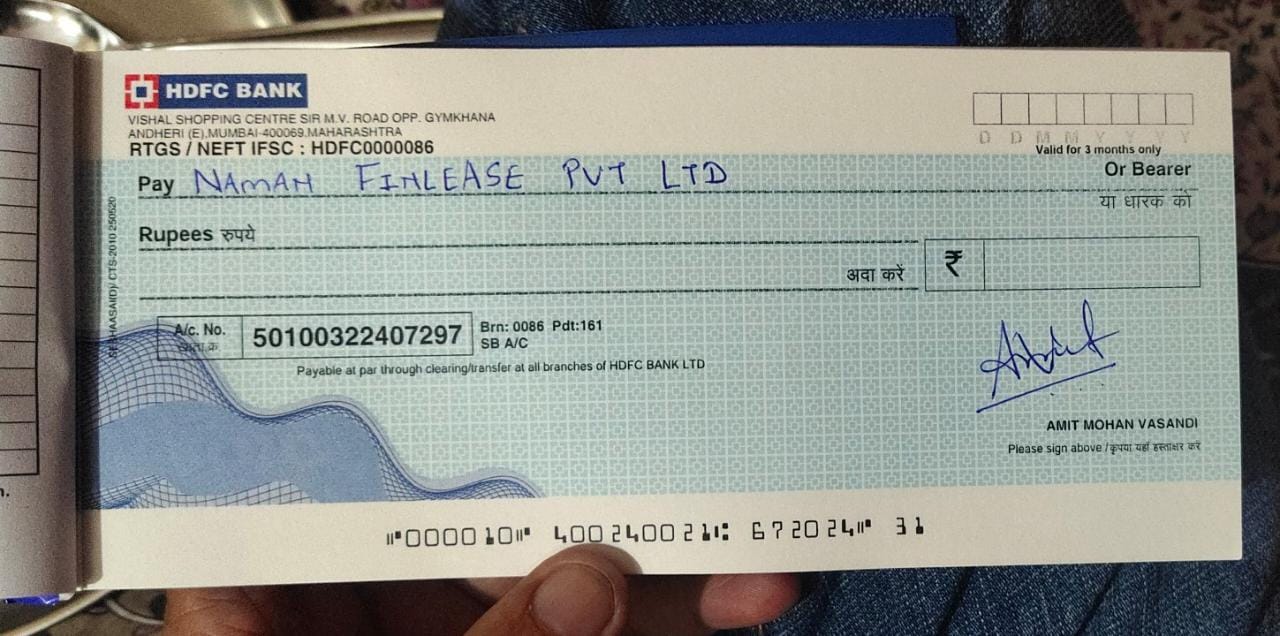 HDFC BANK
VISHAL SHOPPING CENTRE SIR M.V. ROAD OPP. GYMKHANA
ANDHERI (E),MUMBAI-400069.MAHARASHTRA
RTGS / NEFT IFSC : HDFC0000086
D D M M Y Y Y Y
Valid for 3 months only
Pay NAMAN FINLEASE PVT LTD
Or Bearer
या धारक को
Rupees रुपये
अदा करें ₹
A/c. No. 50100322407297
खाता क्र.
Brn: 0086 Pdt:161
SB A/C
Payable at par through clearing/transfer at all branches of HDFC BANK LTD
AMIT MOHAN VASANDI
Please sign above / कृपया यहाँ हस्ताक्षर करें
CTS-2010 250520
⑈000010⑈ 400240021⑆ 672024⑈ 31